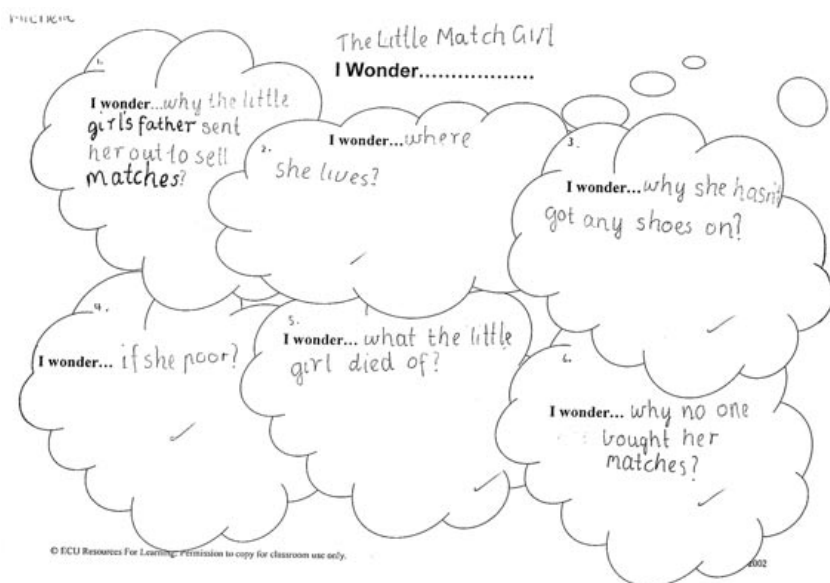 Michelle
The Little Match Girl
I Wonder..................
1.
I wonder...why the little
girl's father sent
her out to sell
matches?
2.
I wonder...where
she lives?
3.
I wonder...why she hasn't
got any shoes on?
4.
I wonder... if she poor?
5.
I wonder... what the little
girl died of?
6.
I wonder... why no one
bought her
matches?
© ECU Resources For Learning. Permission to copy for classroom use only.
2002